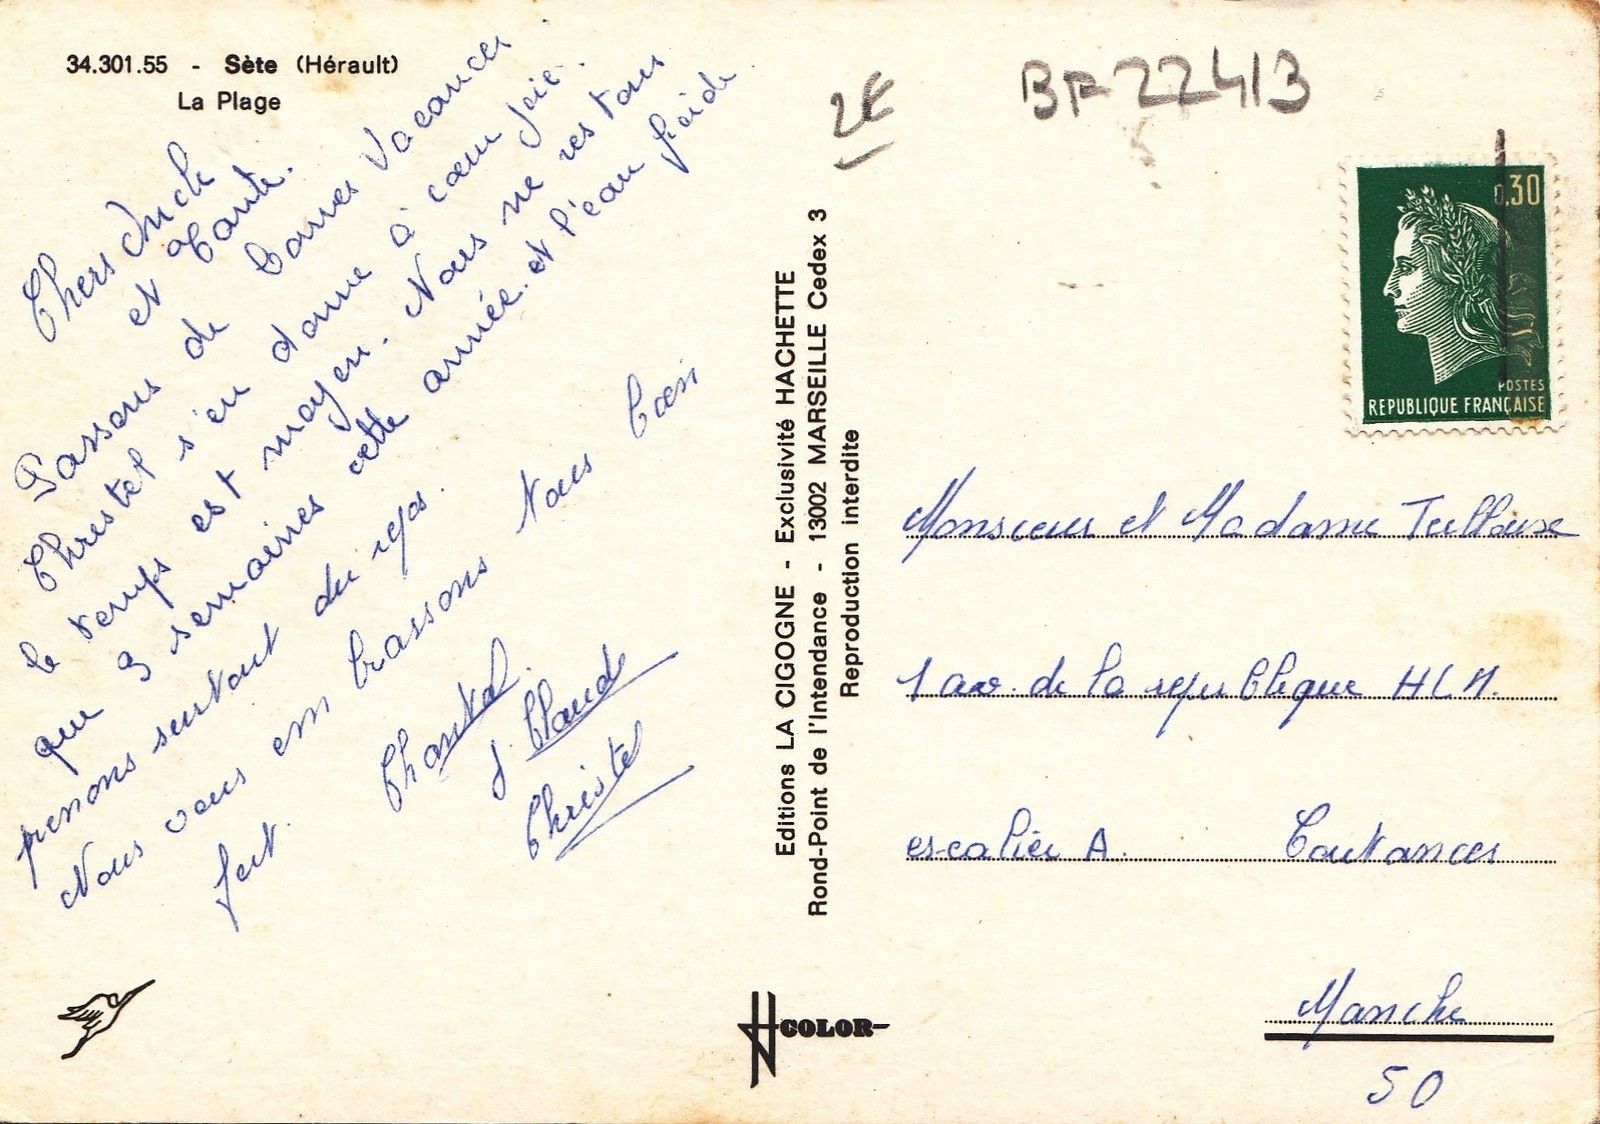 34.301.55 - Sète (Hérault)
La Plage
Chers Oncle
et Tante.
Passons de bonnes vacances
Christel s'en donne à cœur joie.
le temps est moyen. Nous ne restons
que 3 semaines cette année. et l'eau froide
prenons surtout du repos.
Nous vous em brassons tous bien
fort.
Chantal.
J. Claude
Christel
Editions LA CIGOGNE - Exclusivité HACHETTE
Rond-Point de l'Intendance - 13002 MARSEILLE Cedex 3
Reproduction interdite
COLOR
2€
BR22413
0,30
POSTES
REPUBLIQUE FRANÇAISE
Monsieur et Madame
1 av. de la republique HLM.
escalier A. Coutances
Manche
50